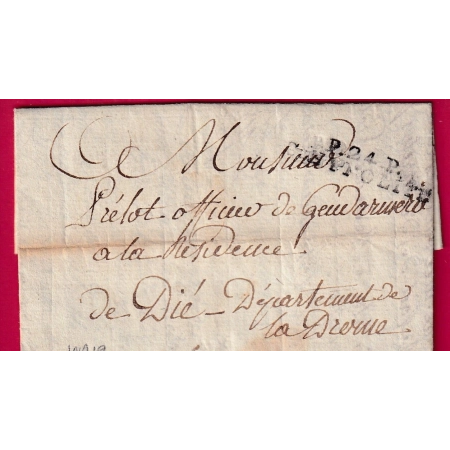 Monsieur
Prélot officier de Gendarmerie
a la Residence
de Dié - Département de
la Drome
P. 24 P.